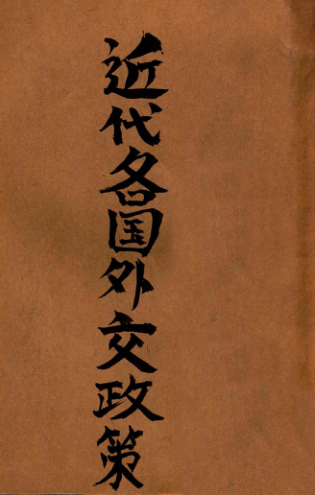 近代各国外交政策